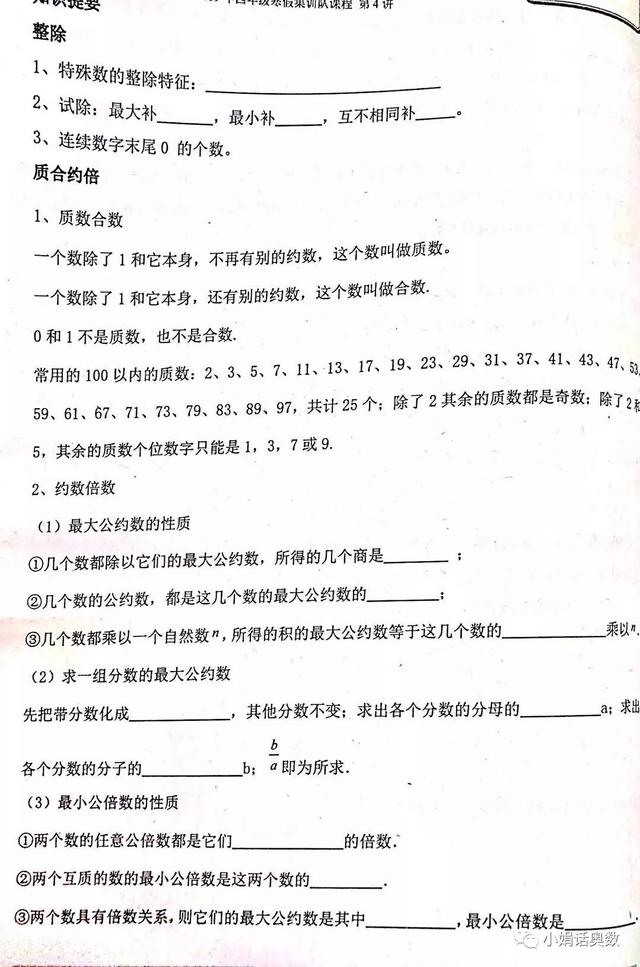 知识提要
年四年级寒假集训队课程 第4讲
整除
1、特殊数的整除特征：____________
2、试除：最大补______，最小补______，互不相同补_____。
3、连续数字末尾0 的个数。
质合约倍
1、质数合数
一个数除了1和它本身，不再有别的约数，这个数叫做质数。
一个数除了1和它本身，还有别的约数，这个数叫做合数.
0和1不是质数，也不是合数.
常用的100以内的质数：2、3、5、7、11、13、17、19、23、29、31、37、41、43、47、53、
59、61、67、71、73、79、83、89、97，共计25个；除了2其余的质数都是奇数；除了2和
5，其余的质数个位数字只能是1，3，7或9.
2、约数倍数
（1）最大公约数的性质
①几个数都除以它们的最大公约数，所得的几个商是________ ；
②几个数的公约数，都是这几个数的最大公约数的_________；
③几个数都乘以一个自然数n，所得的积的最大公约数等于这几个数的____________乘以n.
（2）求一组分数的最大公约数
先把带分数化成____________，其他分数不变；求出各个分数的分母的____________a；求出
各个分数的分子的____________b；b/a即为所求.
（3）最小公倍数的性质
①两个数的任意公倍数都是它们_____________的倍数.
②两个互质的数的最小公倍数是这两个数的__________.
③两个数具有倍数关系，则它们的最大公约数是其中__________，最小公倍数是________
小娟话奥数